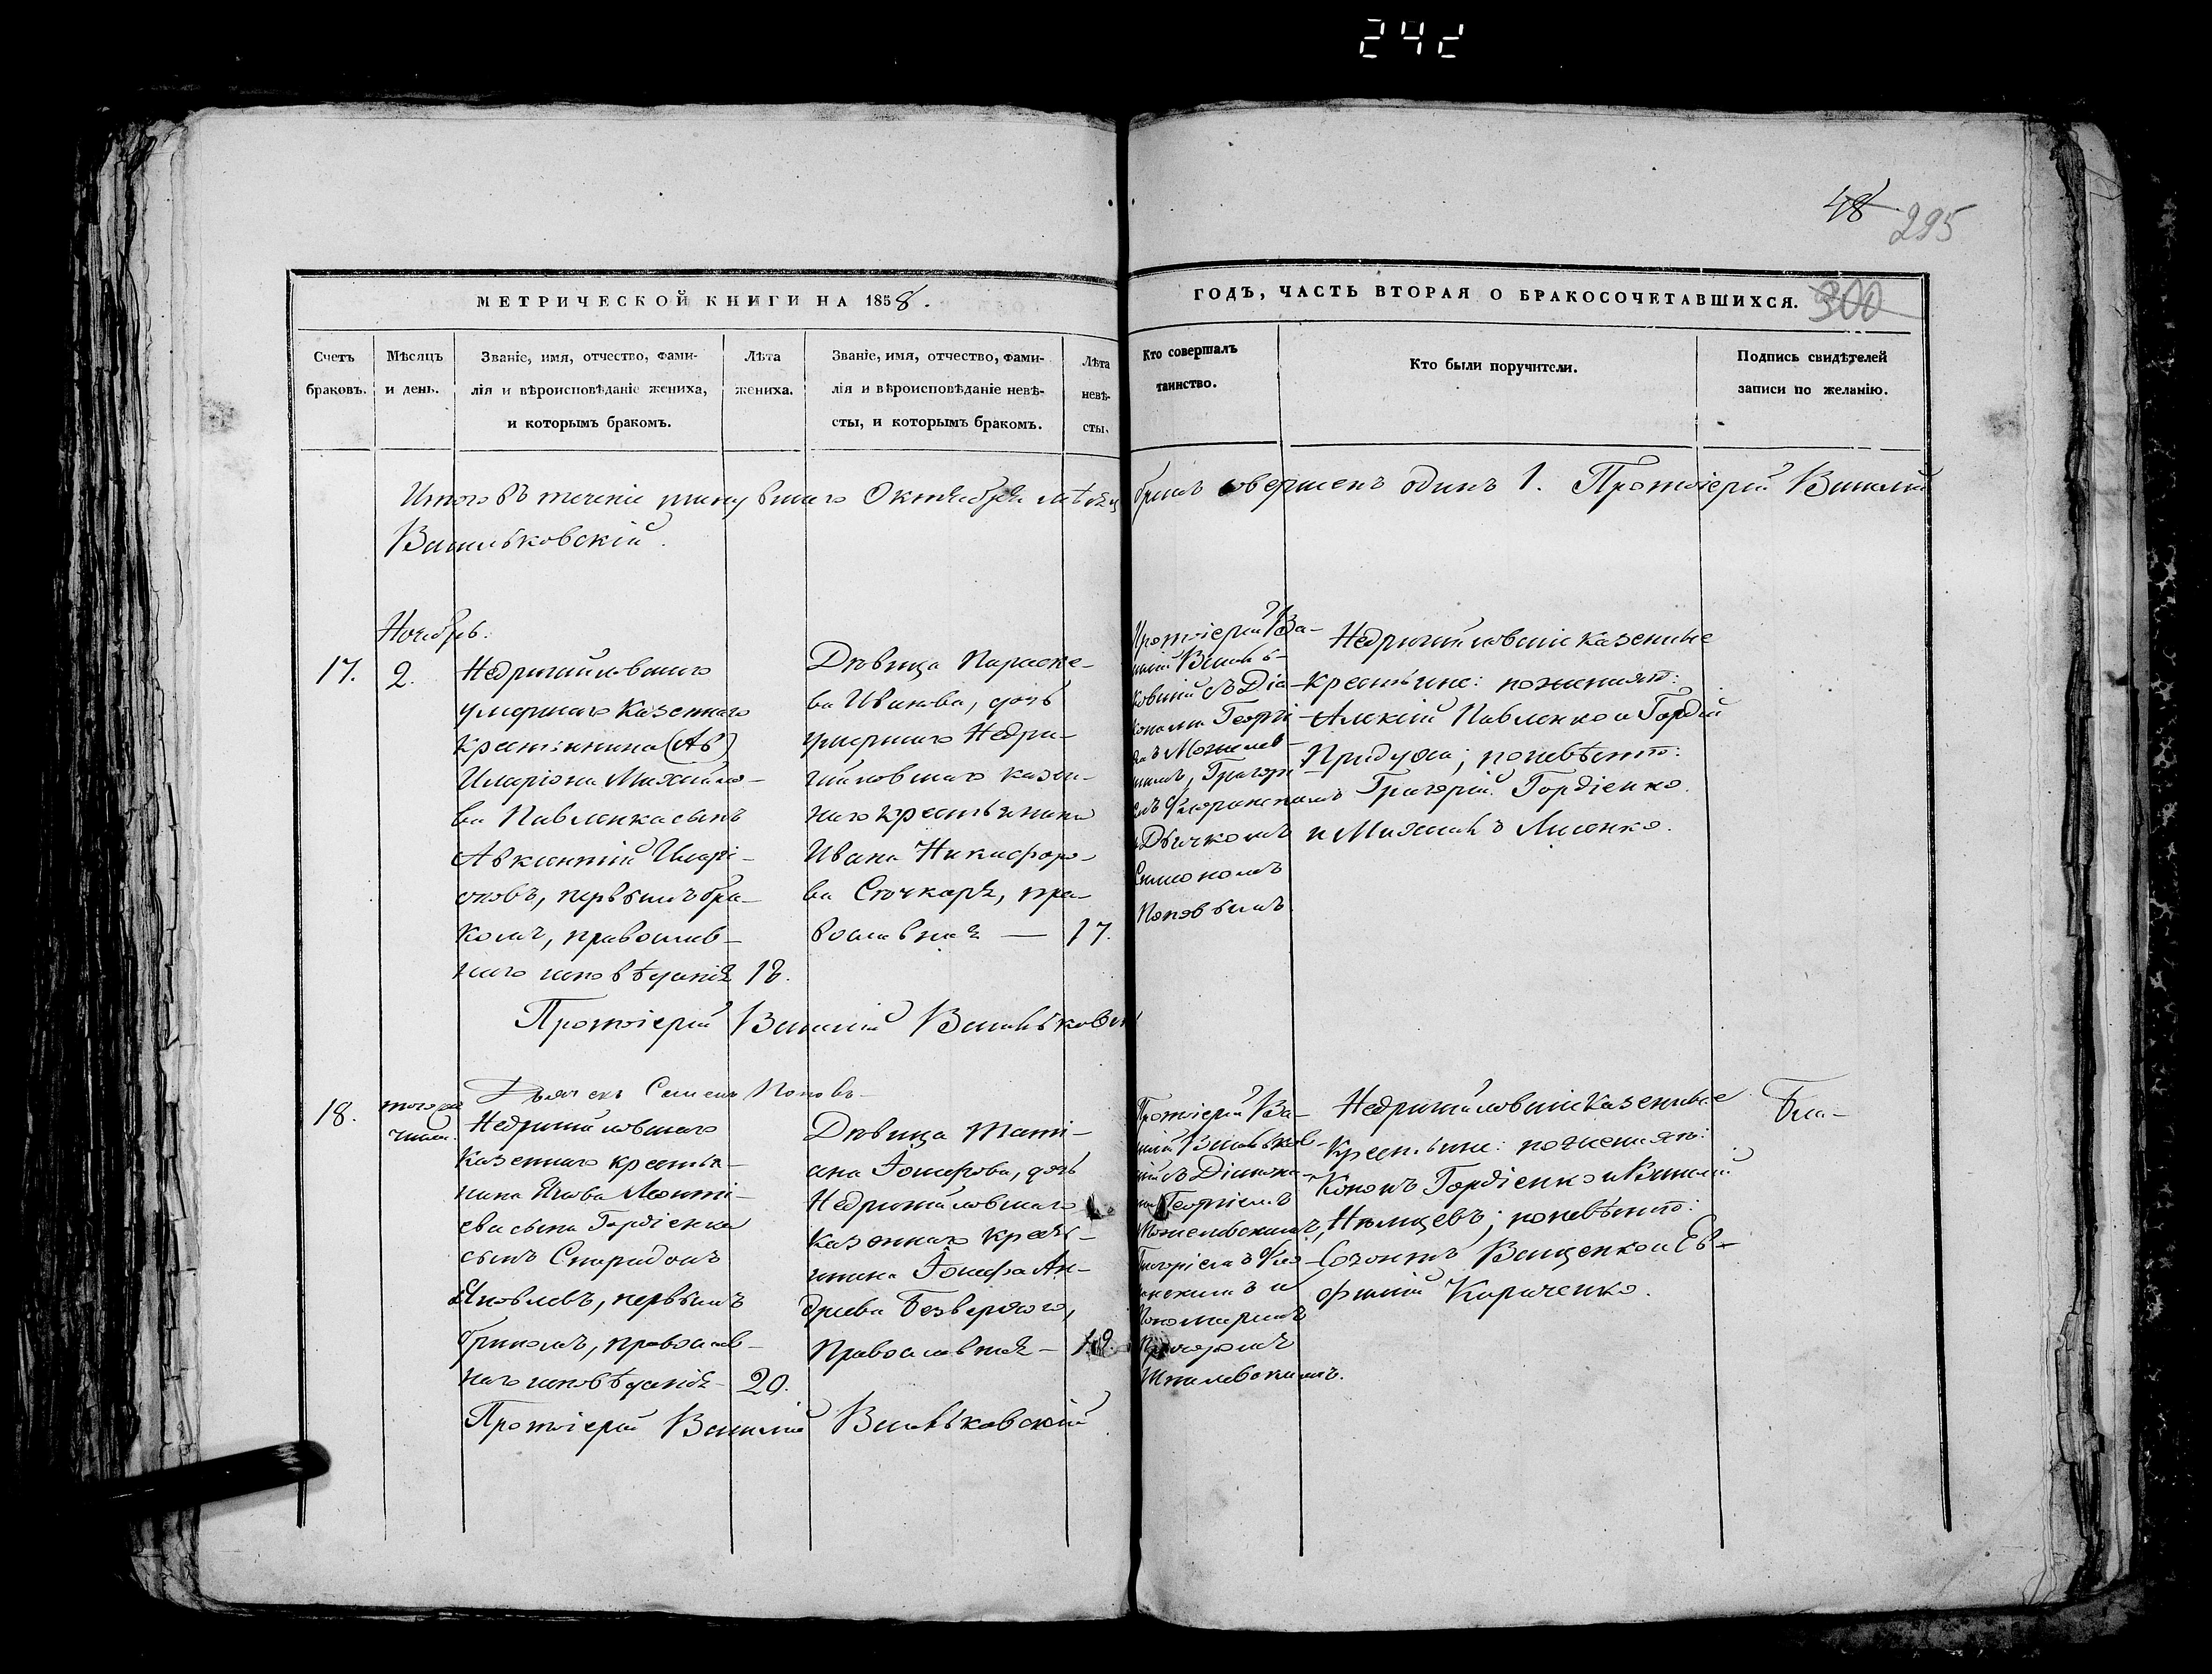 242
48
295
МЕТРИЧЕСКОЙ КНИГИ НА 1858.
ГОДЪ, ЧАСТЬ ВТОРАЯ О БРАКОСОЧЕТАВШИХСЯ.
300
Счетъ
браковъ.
Мѣсяцъ
и день.
Званіе, имя, отчество, фами-
лія и вѣроисповѣданіе жениха,
и которымъ бракомъ.
Лѣта
жениха.
Званіе, имя, отчество, фами-
лія и вѣроисповѣданіе невѣ-
сты, и которымъ бракомъ.
Лѣта
невѣ-
сты.
Кто совершалъ
таинство.
Кто были поручители.
Подпись свидѣтелей
записи по желанію.
Итого въ теченіе минувшаго Октября мѣсяца бракъ совершенъ одинъ 1. Протоіерей Василій
Васильковскій.
Ноябрь.
17.
2.
Недригайловскаго
умершаго казеннаго
крестьянина (Ав)
Иларіона Михайло-
ва Павленка сынъ
Авксентій Иларі-
оновъ, первымъ бра-
комъ, православ-
наго исповѣданія
18.
Дѣвица Параске-
ва Иванова, дочь
умершаго Недри-
гайловскаго казен-
наго крестьянина
Ивана Никифоро-
ва Сточкаря, пра-
вославная —
17.
Протоіерей Ва-
силій Василь-
ковскій съ Діа-
кономъ Георгі-
емъ
Григорі-
емъ
и Дьячкомъ
Симеономъ
Поповымъ.
Недригайловскіе казенные
крестьяне: по женихѣ:
Алексій Павленко и Гордій
Придуха; по невѣстѣ:
Григорій Гордіенко
и Михаилъ Лисенко.
Протоіерей Василій Васильковскій
Дьячекъ Симеонъ Поповъ
18.
того же
числа.
Недригайловскаго
казеннаго крестья-
нина Якова Леонті-
ева сына Гордіенка
сынъ Спиридонъ
Яковлевъ, первымъ
бракомъ, православ-
наго исповѣданія
20.
Дѣвица Таті-
ана Іосифова, дочь
Недригайловскаго
казеннаго кресть-
янина Іосифа Ан-
дреева Безверхого,
Православная —
Протоіерей Ва-
силій Васильков-
скій съ Діакона-
ми Георгіемъ
Григоріемъ
и
Пономаремъ
Недригайловскіе казенные
крестьяне: по женихѣ:
Кононъ Гордіенко и Василій
Нѣмцевъ; по невѣстѣ:
Созонтъ Ващенко и Ев-
фимій Кириченко.
Протоіерей Василій Васильковскій